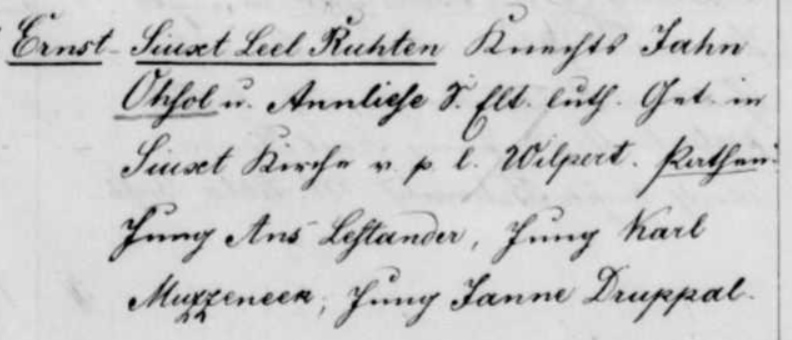 Ernst - Siuxt Leel Ruhten Knechts Jahn
Ohsol u. Annliese S. Elt. luth. Get. in
Siuxt Kirche v. p. l. Wilpert. Pathen:
Jung Ans Lestander, Jung Karl
Muzzeneek, Jung Janne Druppal.